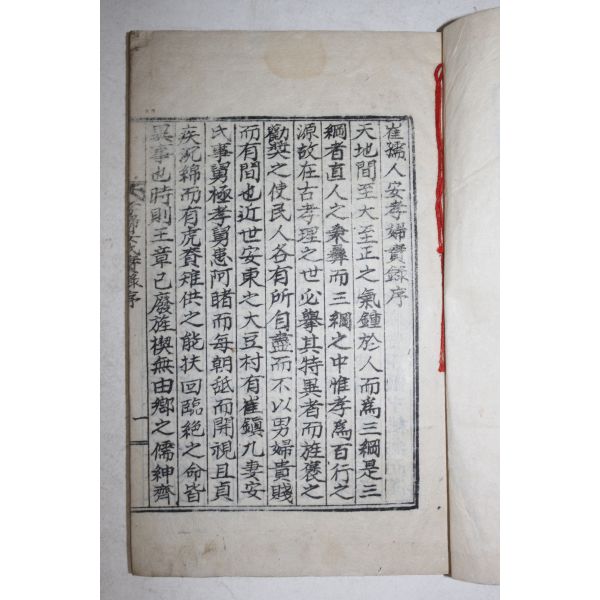 崔孺人安孝婦實錄序
天地間至大至正之氣鍾於人而爲三綱是三
綱者直人之秉彝而三綱之中惟孝爲百行之
源故在古孝理之世必擧其特異者而旌褒之
勸獎之使民人各有所自盡而不以男婦貴賤
而有間也近世安東之大豆村有崔鎭九妻安
氏事舅極孝舅患阿睹而每朝舐而開視且貞
疾沉綿而有虎賚雉供之能扶回臨絶之命皆
異事也時則王章已廢旌楔無由鄉之儒紳齊
序
一